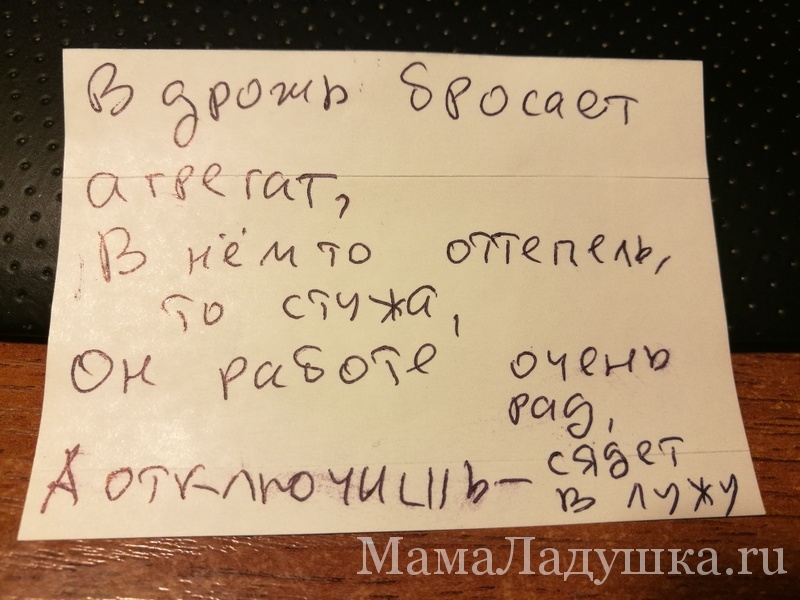 В дрожь бросает
агрегат,
В нём то оттепель,
то стужа,
Он работе очень
рад,
А отключишь - сядет
в лужу
МамаЛадушка.ru